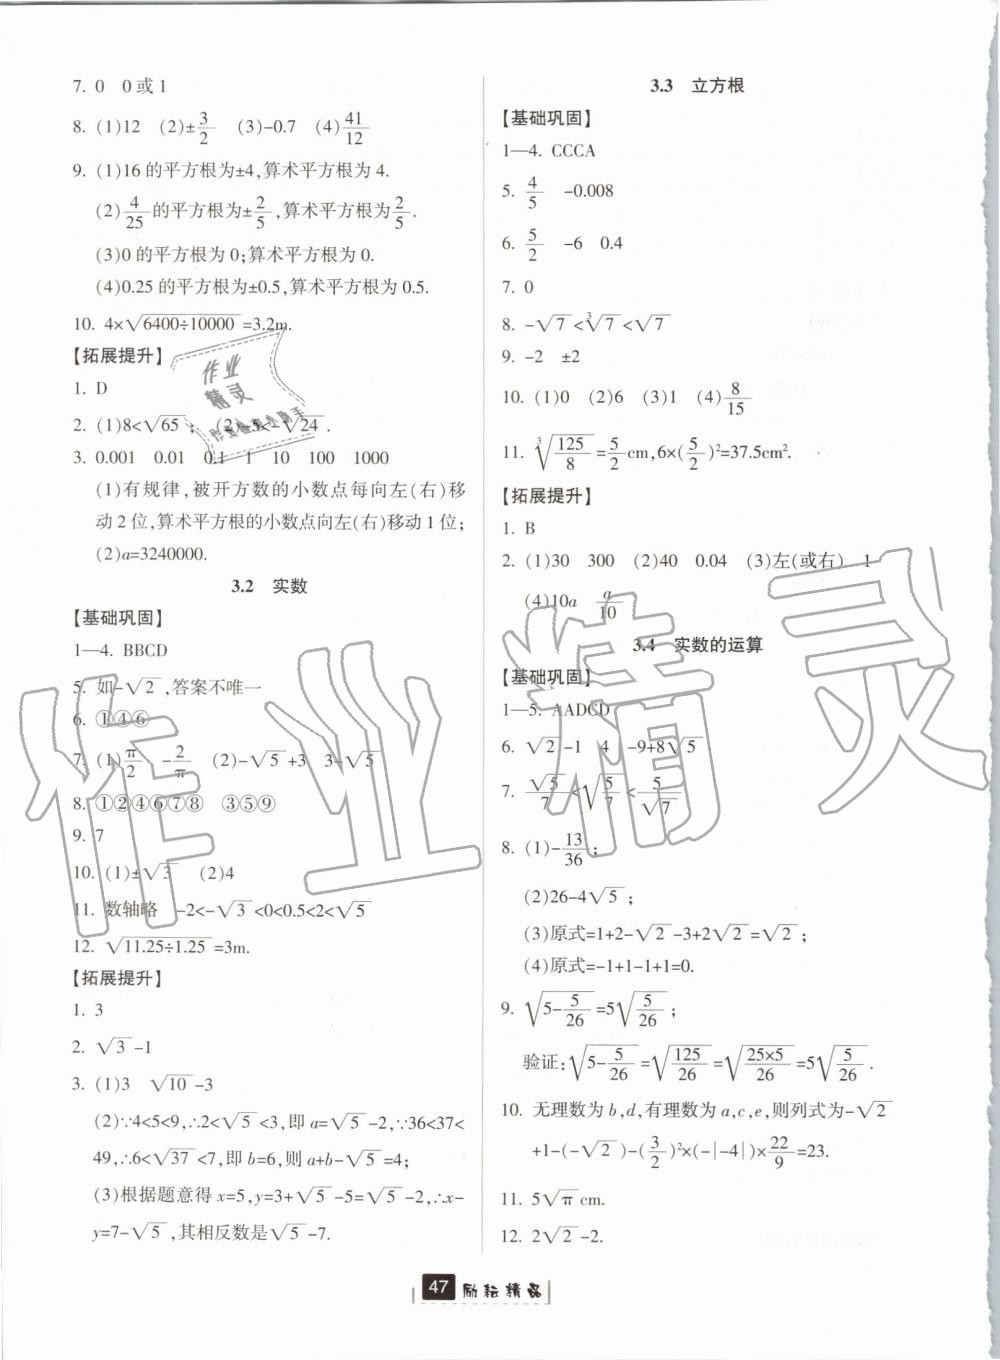 7. 0　0或1
8. (1)12　(2)±3/2　(3)-0.7　(4)41/12
9. (1)16的平方根为±4,算术平方根为4.
(2)4/25的平方根为±2/5,算术平方根为2/5.
(3)0的平方根为0;算术平方根为0.
(4)0.25的平方根为±0.5,算术平方根为0.5.
10. 4×√(6400÷10000)=3.2m.
【拓展提升】
1. D
2. (1)8<√65; (2)-5<-√24.
3. 0.001　0.01　0.1　1　10　100　1000
(1)有规律,被开方数的小数点每向左(右)移
动2位,算术平方根的小数点向左(右)移动1位;
(2)a=3240000.
3.2　实数
【基础巩固】
1—4. BBCD
5. 如-√2,答案不唯一
6. ①④⑥
7. (1)π/2　-2/π　(2)-√5+3　3-√5
8. ①②④⑥⑦⑧　③⑤⑨
9. 7
10. (1)±√3　(2)4
11. 数轴略　-2<-√3<0<0.5<2<√5
12. √(11.25÷1.25)=3m.
【拓展提升】
1. 3
2. √3-1
3. (1)3　√10-3
(2)∵4<5<9,∴2<√5<3,即a=√5-2,∵36<37<
49,∴6<√37<7,即b=6,则a+b-√5=4;
(3)根据题意得x=5,y=3+√5-5=√5-2,∴x-
y=7-√5,其相反数是√5-7.
3.3　立方根
【基础巩固】
1—4. CCCA
5. 4/5　-0.008
6. 5/2　-6　0.4
7. 0
8. -√7<∛7<√7
9. -2　±2
10. (1)0　(2)6　(3)1　(4)8/15
11. ∛(125/8)=5/2cm,6×(5/2)²=37.5cm².
【拓展提升】
1. B
2. (1)30　300　(2)40　0.04　(3)左(或右)　1
(4)10a　a/10
3.4　实数的运算
【基础巩固】
1—5. AADCD
6. √2-1　4　-9+8√5
7. √5/7<√(5/7)<5/√7
8. (1)-13/36;
(2)26-4√5;
(3)原式=1+2-√2-3+2√2=√2;
(4)原式=-1+1-1+1=0.
9. √(5-5/26)=5√(5/26);
验证:√(5-5/26)=√(125/26)=√(25×5/26)=5√(5/26).
10. 无理数为b,d,有理数为a,c,e,则列式为-√2
+1-(-√2)-(3/2)²×(-|-4|)×22/9=23.
11. 5√π cm.
12. 2√2-2.
47 励耘精品
作业
精灵
作业精灵